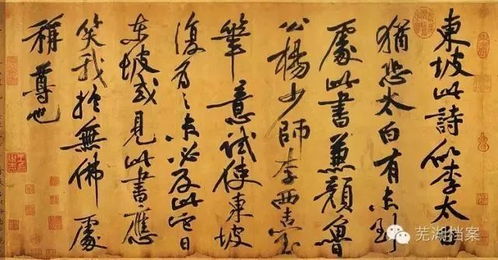 東坡此詩似李太白
猶恐太白有未到
處此書兼顏魯
公楊少師李西臺
筆意試使東坡
復為之未必及此它日
東坡或見此書應
笑我於無佛處
稱尊也
芜湖档案